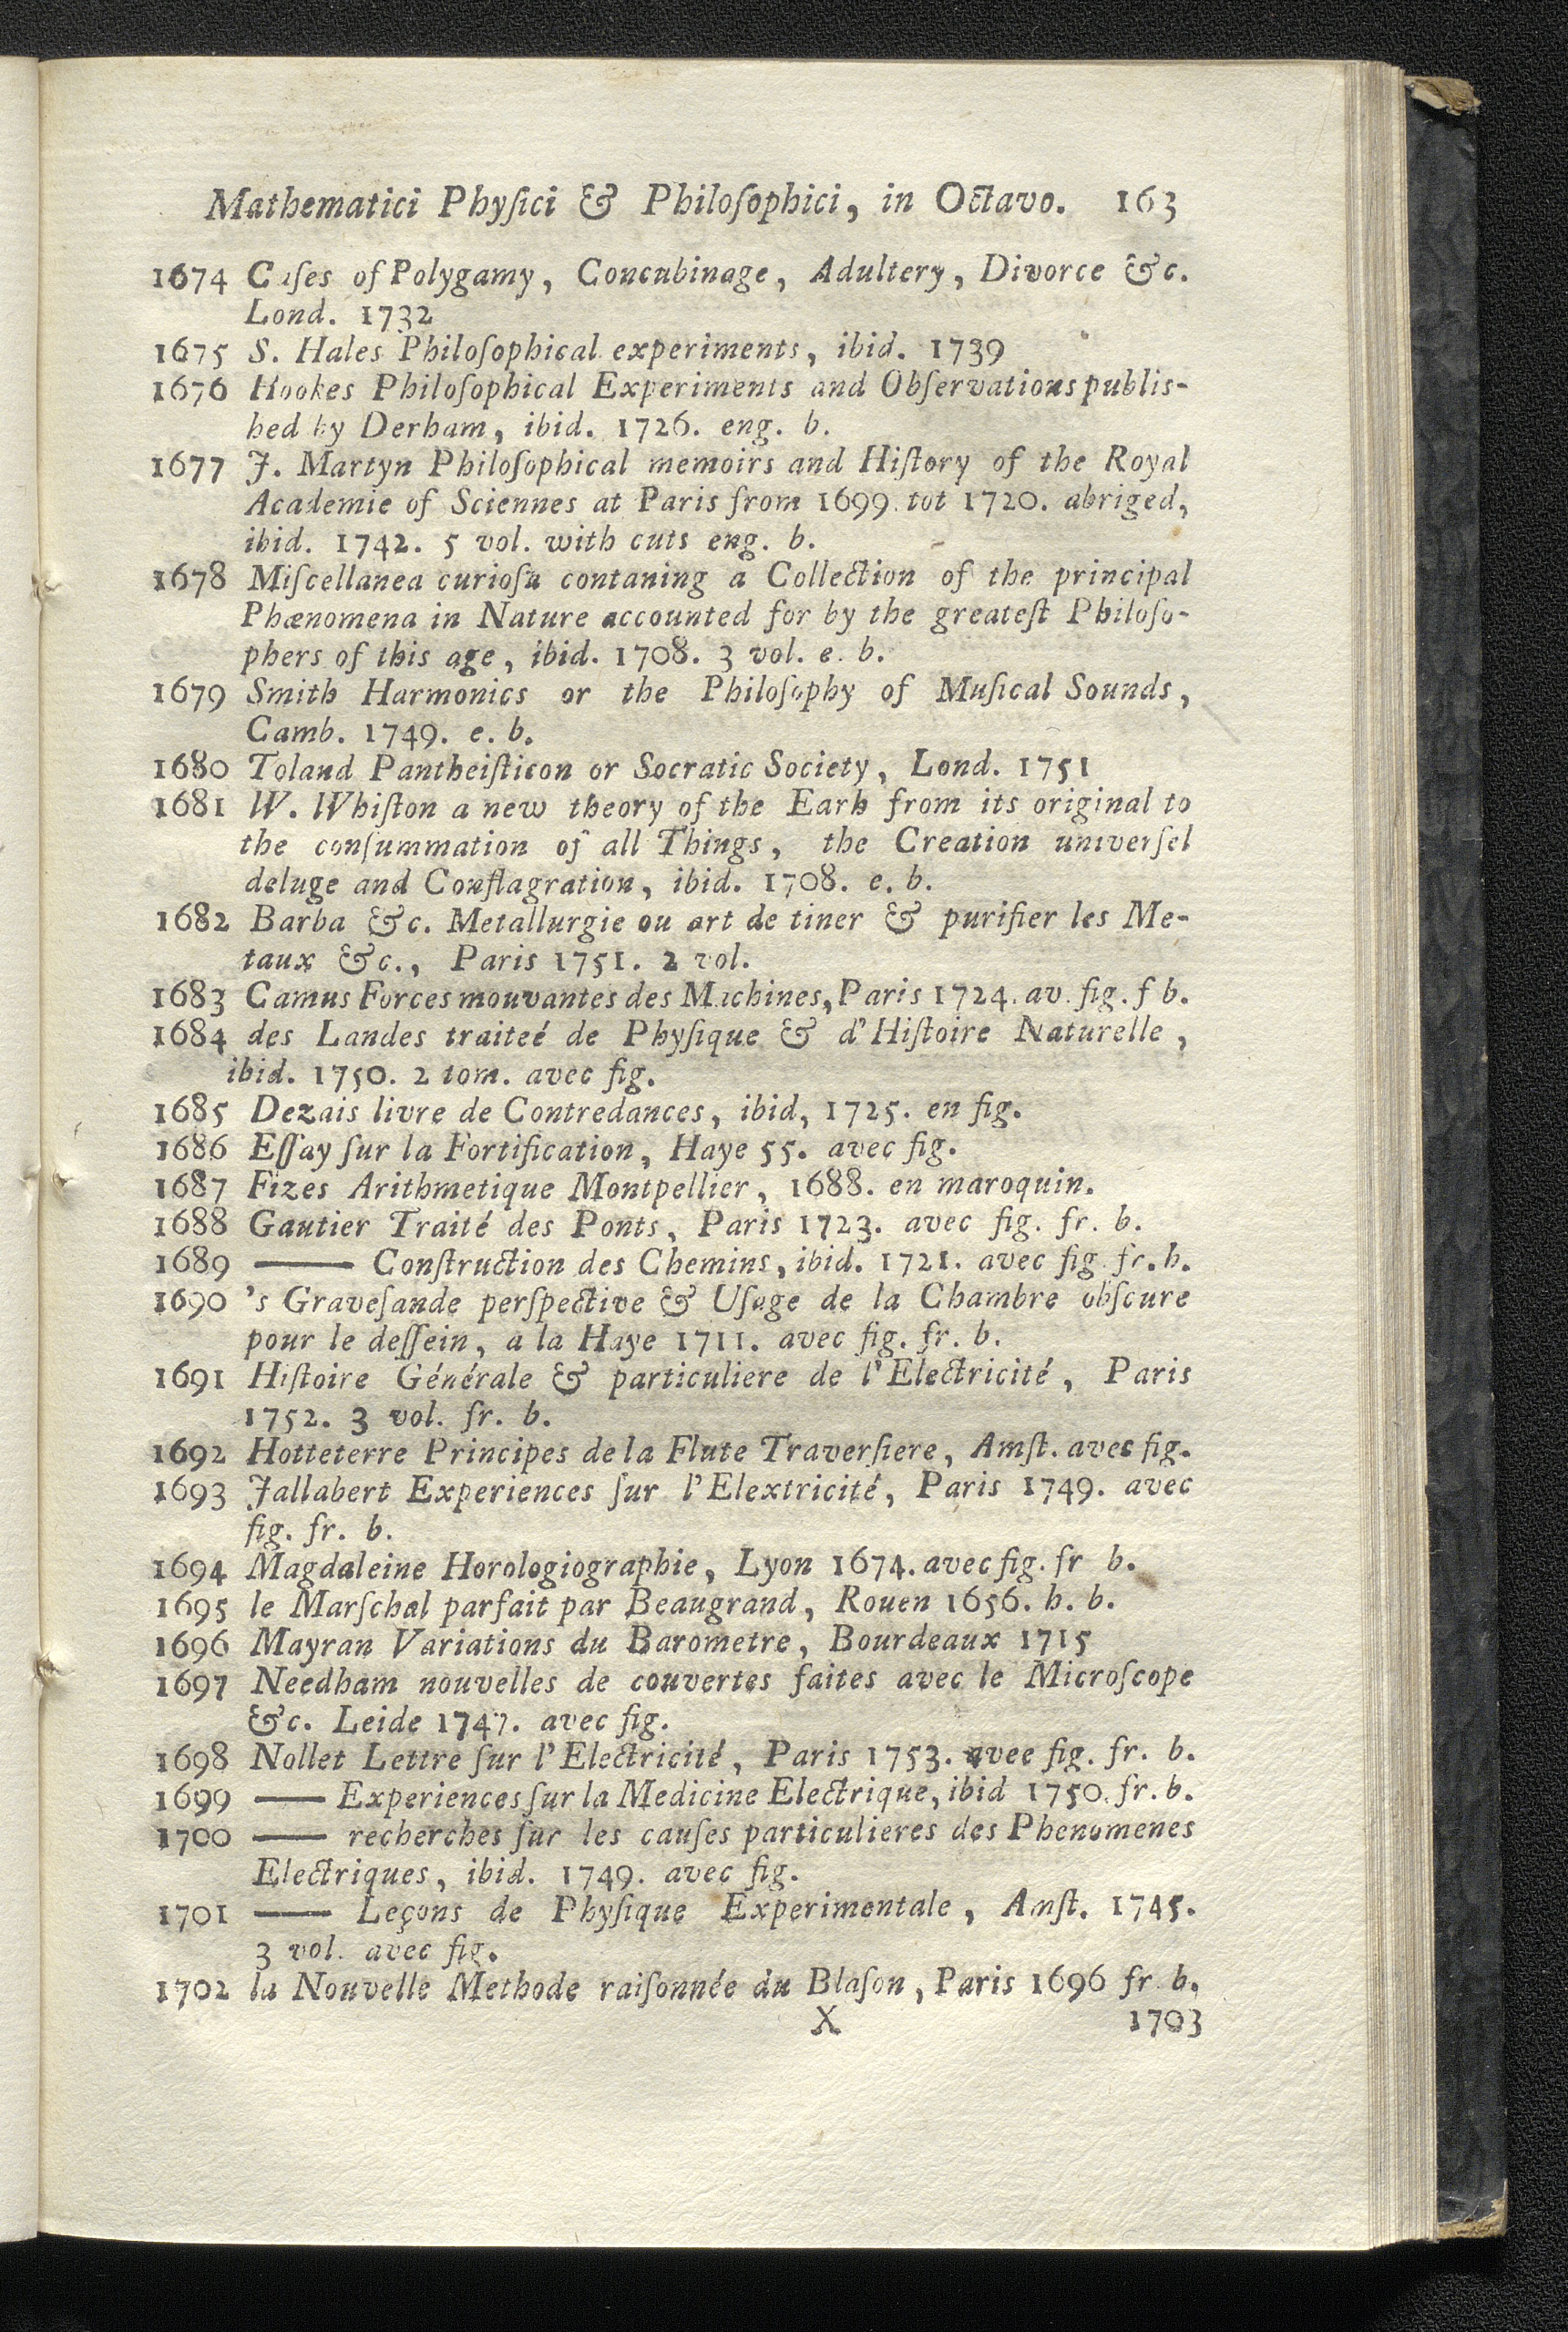 Mathematici Phyſici & Philoſophici, in Octavo. 163
1674 Caſes of Polygamy, Coucubinage, Adultery, Divorce &c.
Lond. 1732
1675 S. Hales Philoſophical experiments, ibid. 1739
1676 Hookes Philoſophical Experiments and Obſervations publis-
hed by Derham, ibid. 1726. eng. b.
1677 J. Martyn Philoſophical memoirs and Hiſtory of the Royal
Academie of Sciennes at Paris from 1699. tot 1720. abriged,
ibid. 1742. 5 vol. with cuts eng. b.
1678 Miſcellanea curioſa contaning a Collection of the principal
Phænomena in Nature accounted for by the greateſt Philoſo-
phers of this age, ibid. 1708. 3 vol. e. b.
1679 Smith Harmonics or the Philoſophy of Muſical Sounds,
Camb. 1749. e. b.
1680 Toland Pantheiſticon or Socratic Society, Lond. 1751
1681 W. Whiſton a new theory of the Earh from its original to
the conſummation of all Things, the Creation univerſel
deluge and Conflagration, ibid. 1708. e. b.
1682 Barba &c. Metallurgie ou art de tiner & purifier les Me-
taux &c., Paris 1751. 2 vol.
1683 Camus Forces mouvantes des Machines, Paris 1724. av. fig. f b.
1684 des Landes traiteé de Phyſique & d'Hiſtoire Naturelle,
ibid. 1750. 2 tom. avec fig.
1685 Dezais livre de Contredances, ibid, 1725. en fig.
1686 Eſſay ſur la Fortification, Haye 55. avec fig.
1687 Fizes Arithmetique Montpellier, 1688. en maroquin.
1688 Gautier Traité des Ponts, Paris 1723. avec fig. fr. b.
1689 —— Conſtruction des Chemins, ibid. 1721. avec fig. fr. b.
1690 's Graveſande perſpective & Uſage de la Chambre obſcure
pour le deſſein, a la Haye 1711. avec fig. fr. b.
1691 Hiſtoire Générale & particuliere de l'Electricité, Paris
1752. 3 vol. fr. b.
1692 Hotteterre Principes de la Flute Traverſiere, Amſt. avec fig.
1693 Jallabert Experiences ſur l'Elextricité, Paris 1749. avec
fig. fr. b.
1694 Magdaleine Horologiographie, Lyon 1674. avec fig. fr b.
1695 le Marſchal parfait par Beaugrand, Rouen 1656. h. b.
1696 Mayran Variations du Barometre, Bourdeaux 1715
1697 Needham nouvelles de couvertes faites avec le Microſcope
&c. Leide 1747. avec fig.
1698 Nollet Lettre ſur l'Electricité, Paris 1753. avee fig. fr. b.
1699 —— Experiences ſur la Medicine Electrique, ibid 1750. fr. b.
1700 —— recherches ſur les cauſes particulieres des Phenomenes
Electriques, ibid. 1749. avec fig.
1701 —— Leçons de Phyſique Experimentale, Amſt. 1745.
3 vol. avec fig.
1702 la Nouvelle Methode raiſonnée du Blaſon, Paris 1696 fr. b.
X 1703